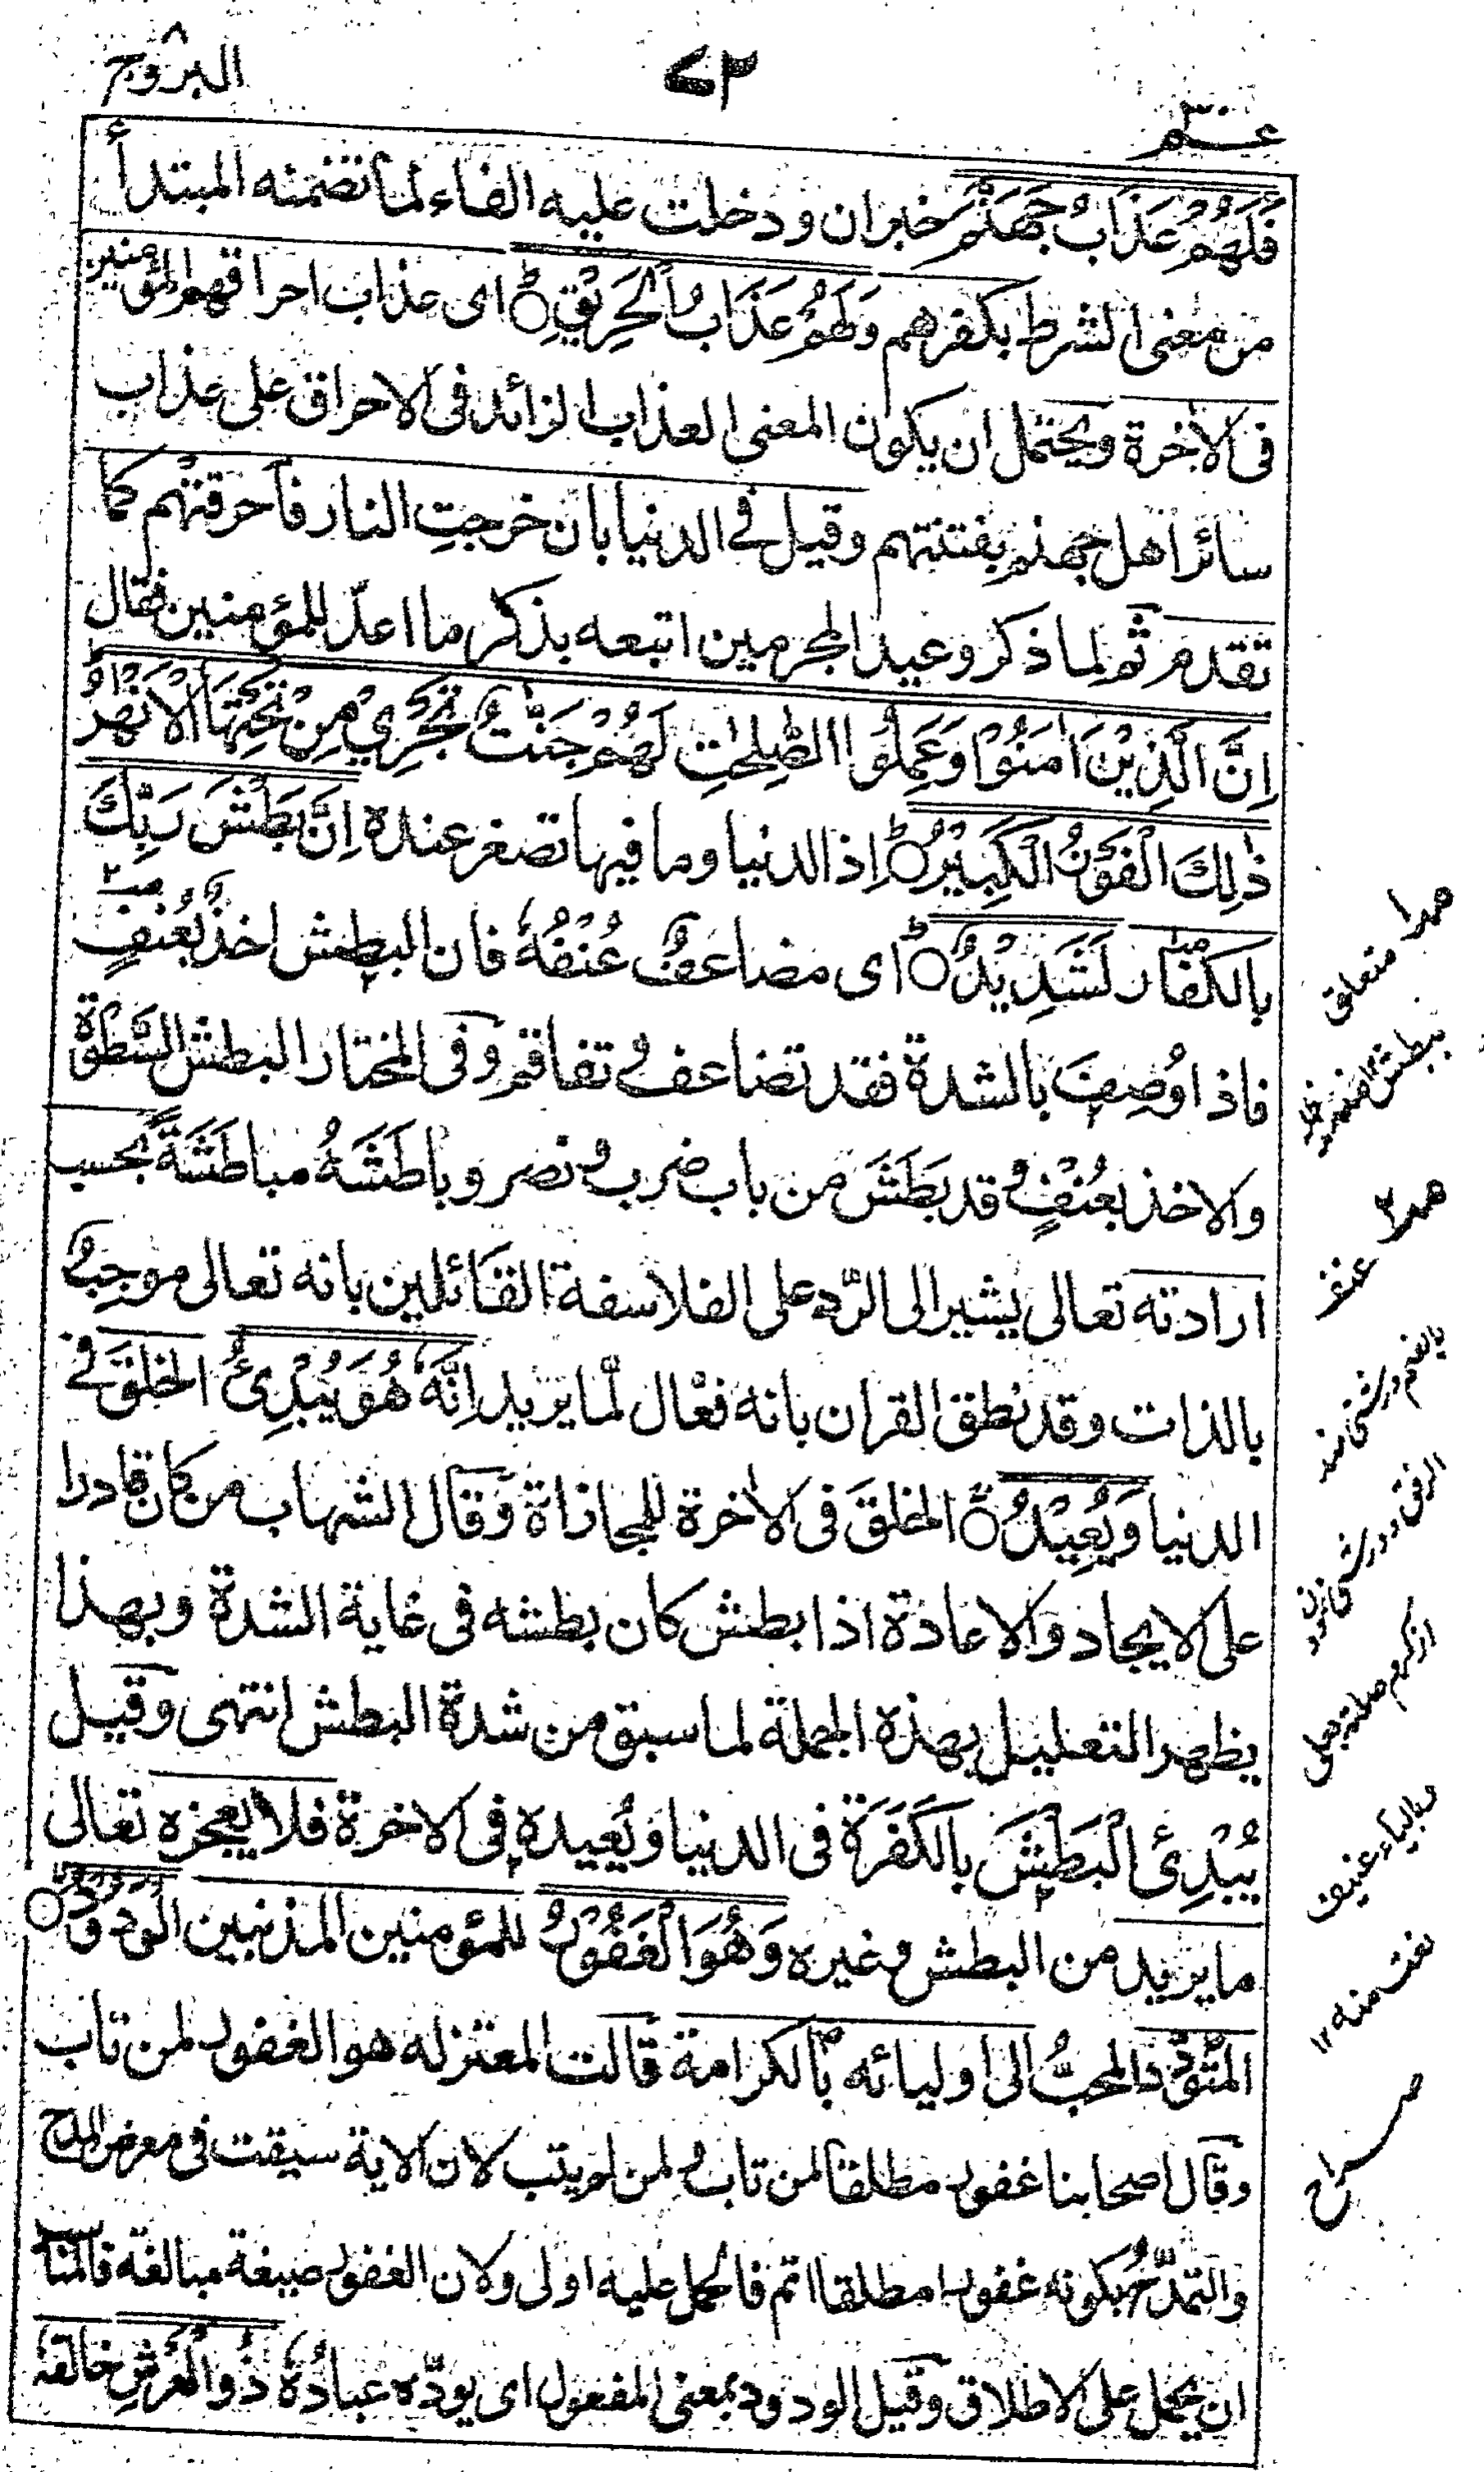 عـم ٣٠
٧٢
البروج
فَلَهُمْ عَذَابُ جَهَنَّمَ خبر ان ودخلت عليه الفاء لما تضمنه المبتدأ
من معنى الشرط بكفرهم وَلَهُمْ عَذَابُ الْحَرِيْقِ اى عذاب احراقهم المؤمنين
فى الاخرة ويحتمل ان يكون المعنى العذاب الزائد فى الاحراق على عذاب
سائر اهل جهنم بفتنتهم وقيل فى الدنيا بان خرجت النار فاحرقتهم كما
تقدم ثم لما ذكر وعيد المجرمين اتبعه بذكر ما اعدّ للمؤمنين فقال
اِنَّ الَّذِيْنَ اٰمَنُوْا وَعَمِلُوا الصّٰلِحٰتِ لَهُمْ جَنّٰتٌ تَجْرِيْ مِنْ تَحْتِهَا الْاَنْهٰرُ
ذٰلِكَ الْفَوْزُ الْكَبِيْرُ اذ الدنيا وما فيها تصغر عنده اِنَّ بَطْشَ رَبِّكَ
بالكفار لَشَدِيْدٌ اى مضاعفٌ عُنْفُهٗ فان البطش اخذٌ بعُنفٍ
فاذا وُصِفَ بالشدة فقد تضاعف و تفاقم وفى المختار البطش السَّطْوَةُ
والاخذ بعُنْفٍ و قد بَطَشَ من باب ضرب و نصر وباطَشَهُ مباطَشَةً بحسب
ارادته تعالى يشير الى الرّد على الفلاسفة القائلين بانه تعالى موجِبٌ
بالذات وقد نطق القران بانه فعّال لّما يريد اِنَّهٗ هُوَ يُبْدِئُ الخلقَ فى
الدنيا وَيُعِيْدُ الخلقَ فى الاخرة للمجازاة وقال الشهاب من كان قادرا
على الايجاد والاعادة اذا بطش كان بطشه فى غاية الشدة وبهذا
يظهر التعليل بهذه الجملة لما سبق من شدة البطش انتهى وقيل
يُبْدِئُ الْبَطْشَ بالْكَفَرَةِ فى الدنيا ويُعيده فى الاخرة فلا يعجزه تعالى
ما يريد من البطش و غيره وَهُوَ الْغَفُوْرُ للمؤمنين المذنبين الْوَدُوْدُ
المتودّد المحبُّ الى اوليائه بالكرامة قالت المعتزله هو الغفور لمن تاب
وقال اصحابنا غفور مطلقا لمن تاب و لمن لم يتب لان الاية سيقت فى معرض المدح
والتمدّح بكونه غفورا مطلقا اتم فالحمل عليه اولى ولان الغفور صيغة مبالغة فالمناسب
ان يحمل على الاطلاق وقيل الودود بمعنى المفعول اى يودّه عبادُهٗ ذُو الْعَرْشِ خالقهٗ
متعلق
عنف
بالضم درشتى
نفت منه ١٢
صراح